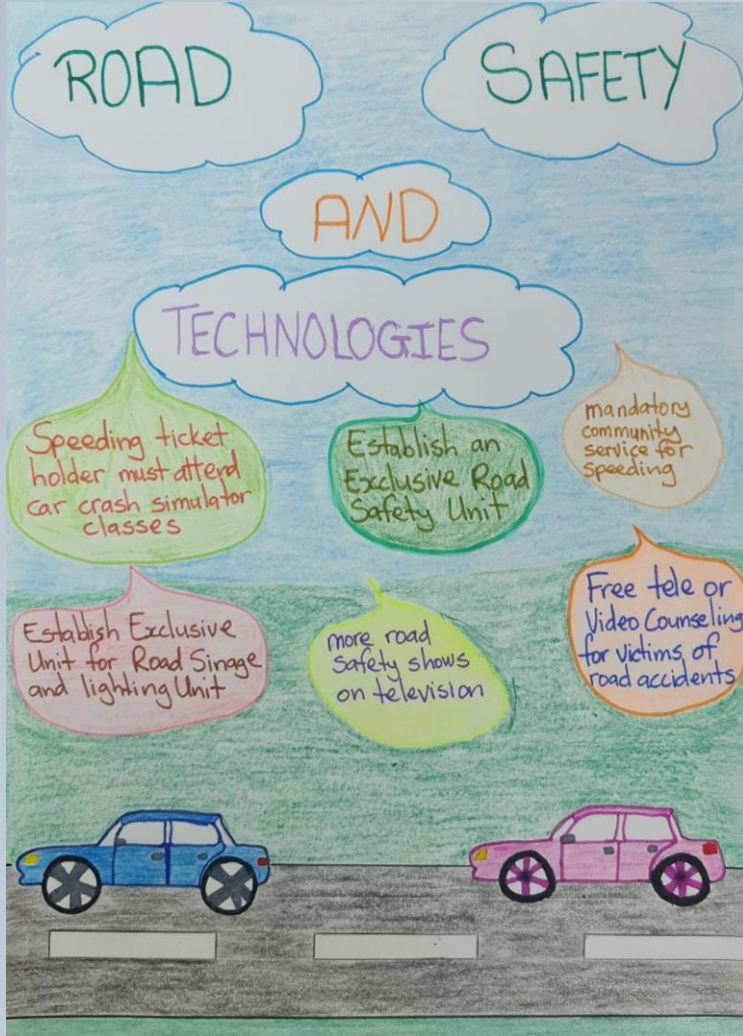 ROAD SAFETY
AND
TECHNOLOGIES
Speeding ticket
holder must attend
car crash simulator
classes
Establish an
Exclusive Road
Safety Unit
mandatory
community
service for
speeding
Establish Exclusive
Unit for Road Sinage
and lighting Unit
more road
Safety shows
on television
Free tele or
Video Counseling
for victims of
road accidents